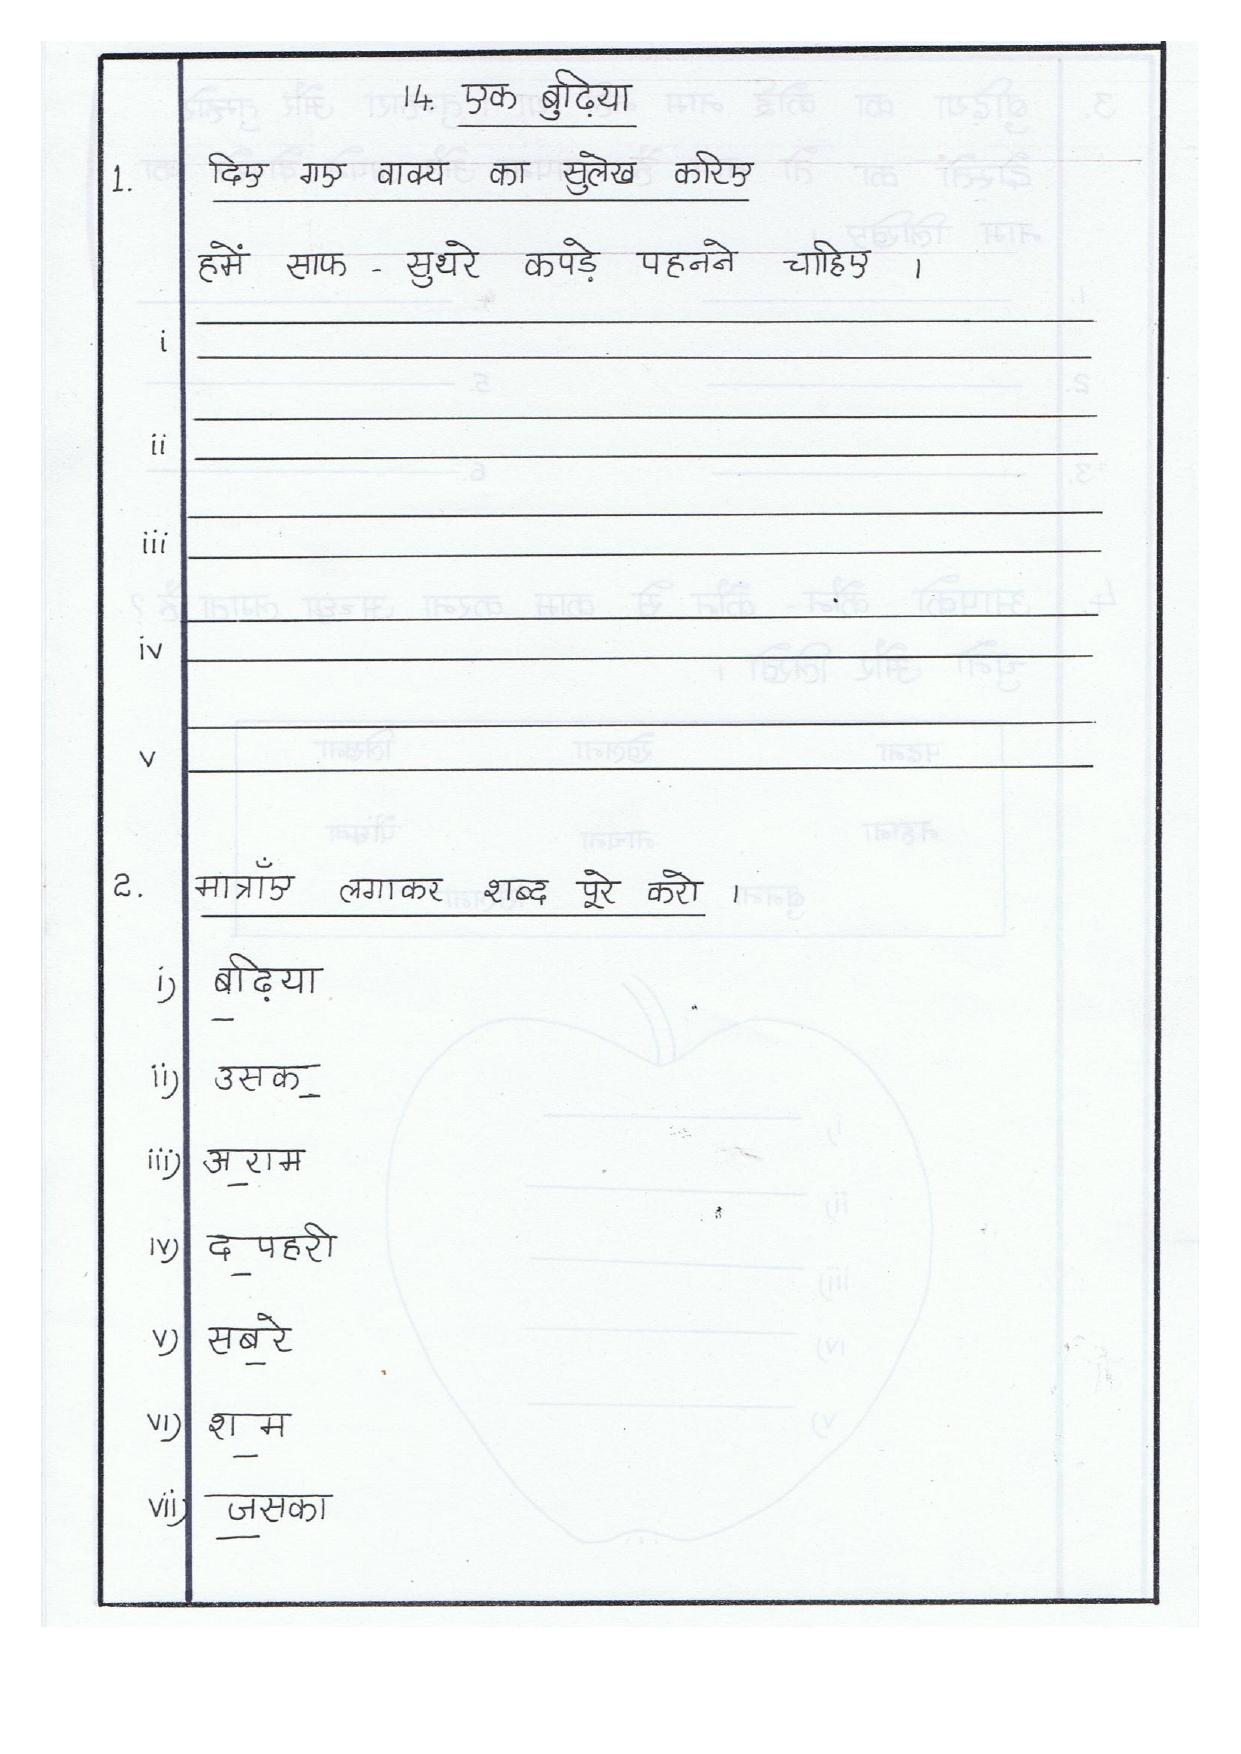 14. एक बुढ़िया
1. दिए गए वाक्य का सुलेख करिए
हमें साफ - सुथरे कपड़े पहनने चाहिए ।
i
ii
iii
iv
v
2. मात्राएँ लगाकर शब्द पूरे करो ।
i) बढ़िया
ii) उसक_
iii) अ_राम
iv) द_पहरी
v) सबरे
vi) श_म
vii) _जसका